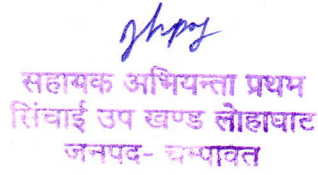 सहायक अभियन्ता प्रथम
सिंचाई उप खण्ड लोहाघाट
जनपद- चम्पावत